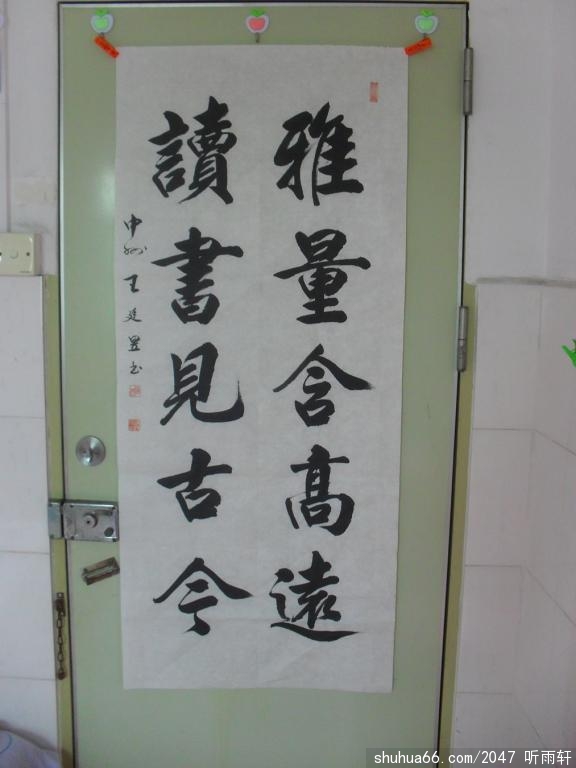 雅量含高遠
讀書見古今
中州王廷昱书
shuhua66.com/2047 听雨轩